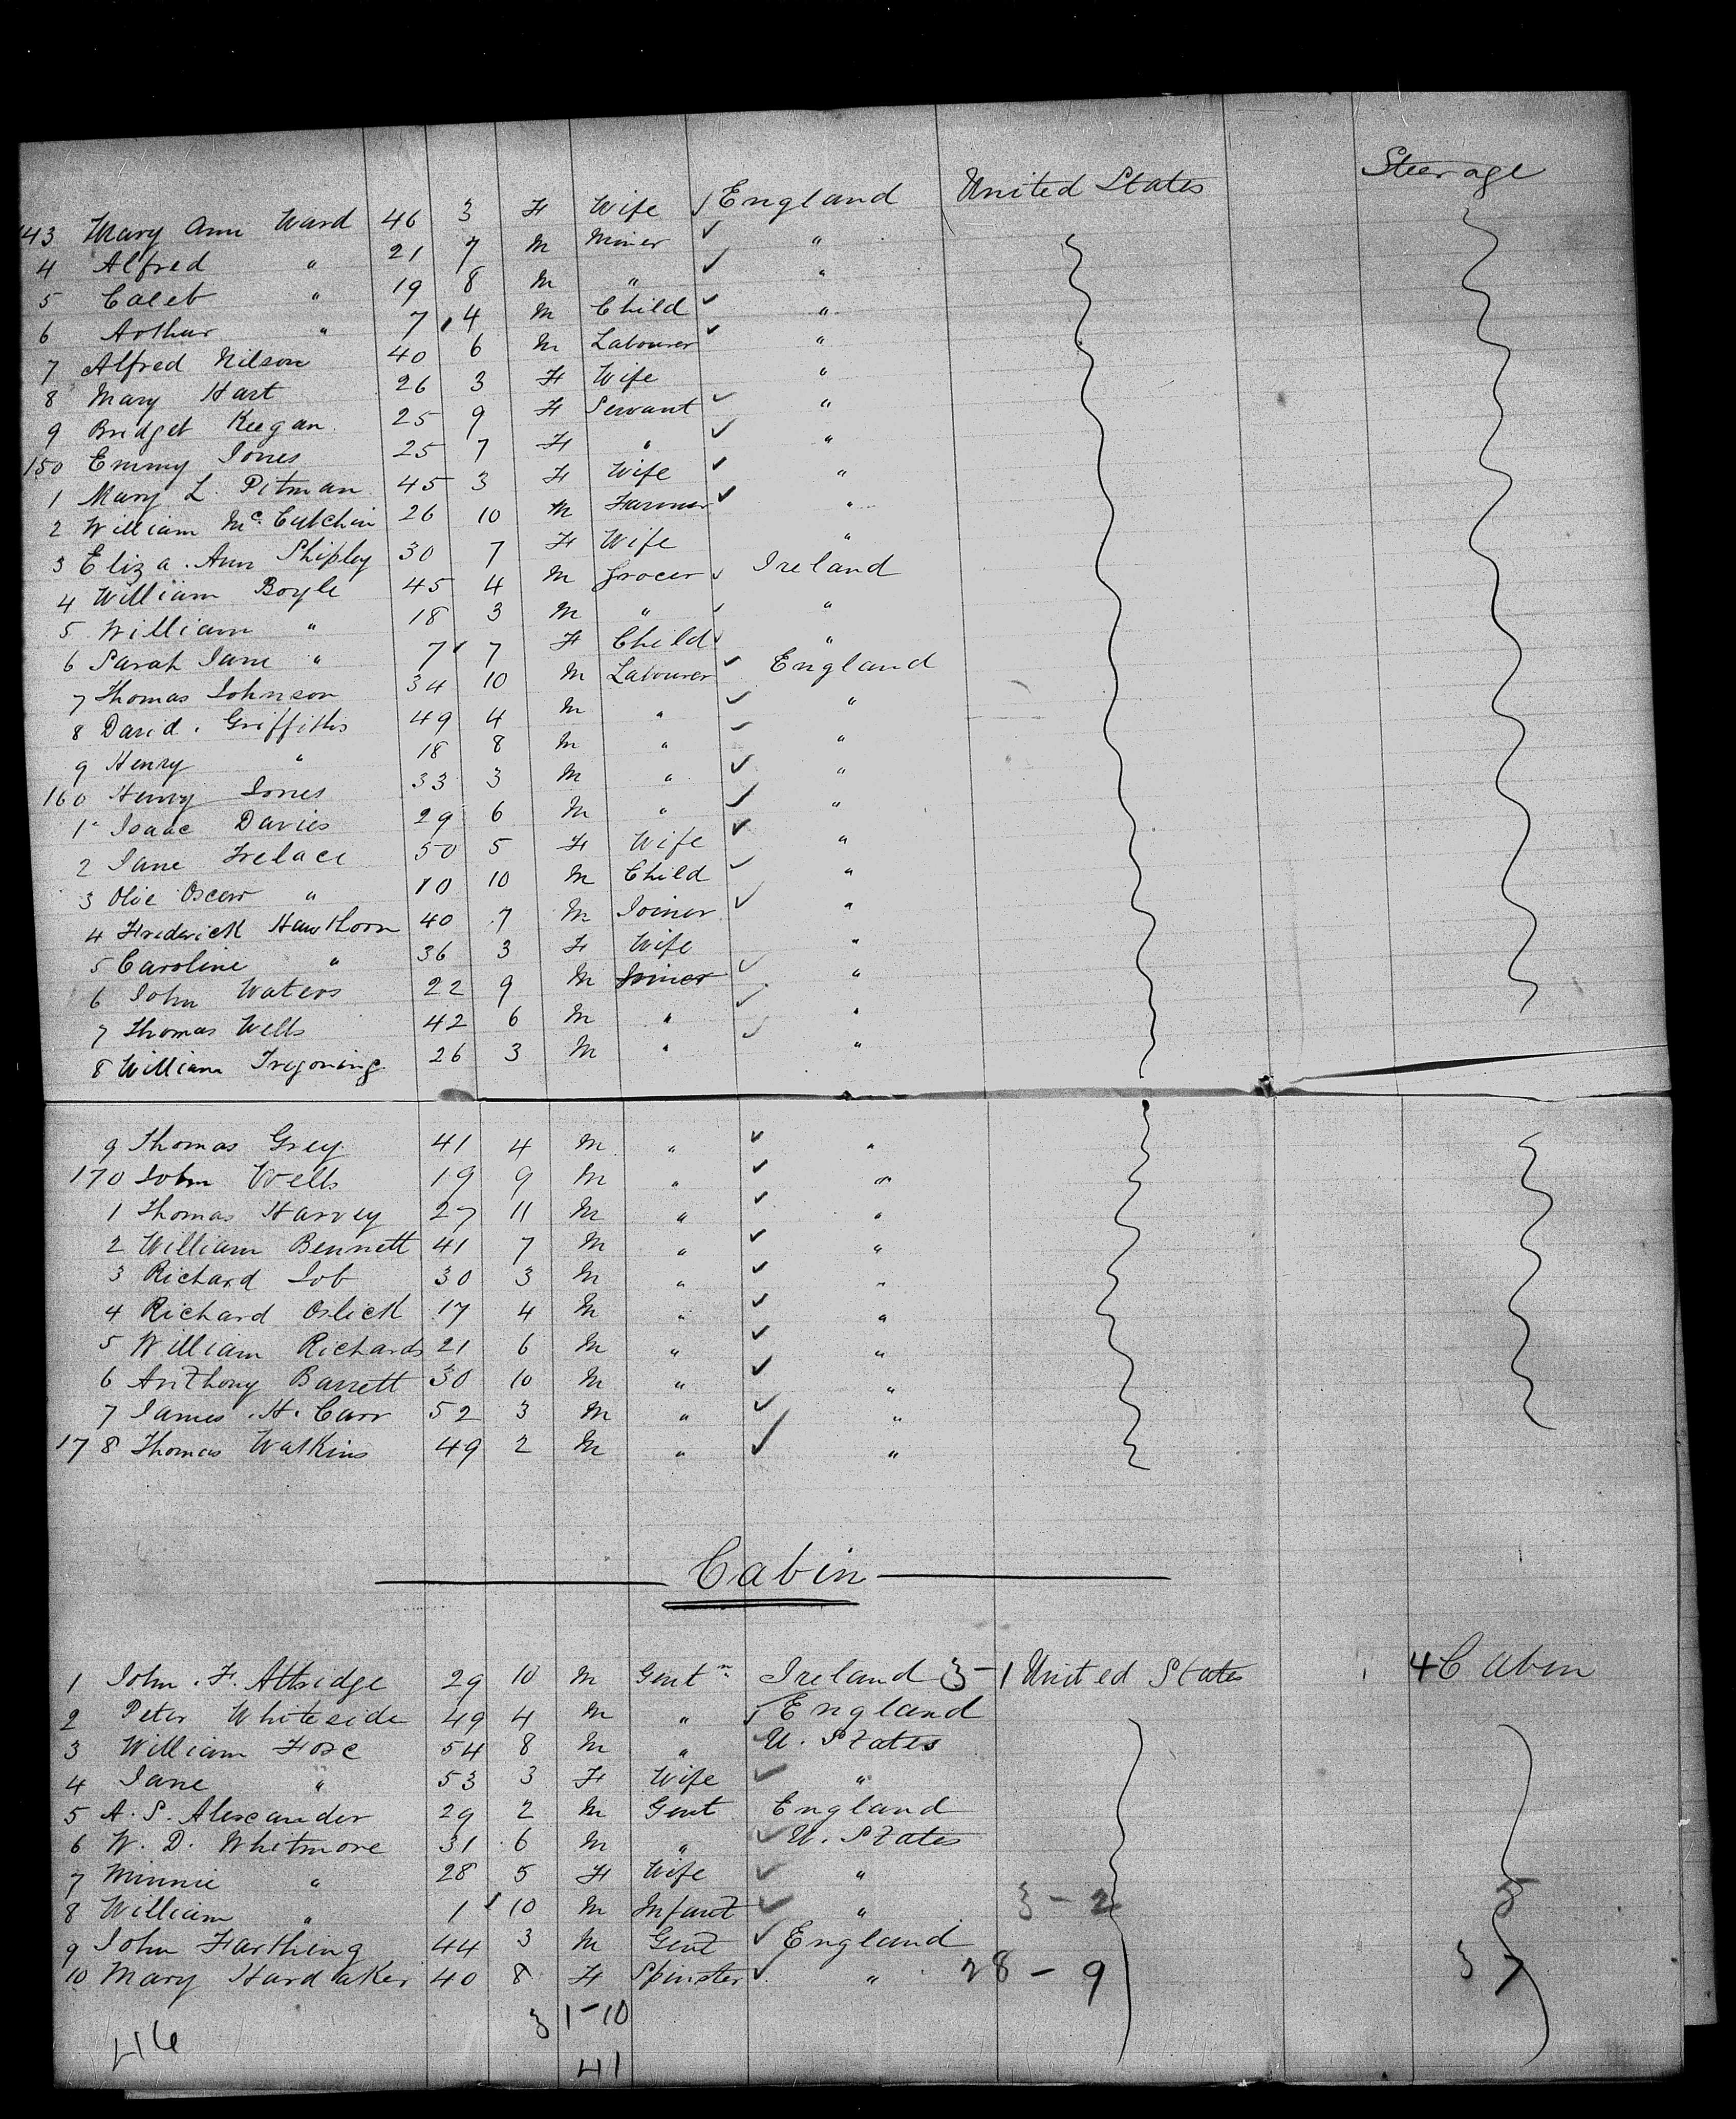 143 Mary Ann Ward 46 3 F Wife England United States Steerage
4 Alfred " 21 7 M Miner "
5 Caleb " 19 8 M " "
6 Arthur " 7 4 M Child "
7 Alfred Nilson 40 6 M Labourer "
8 Mary Hart 26 3 F Wife "
9 Bridget Keegan 25 9 F Servant "
150 Emmy Jones 25 7 F " "
1 Mary L. Pitman 45 3 F Wife "
2 William McCutchin 26 10 M Farmer "
3 Eliza Ann Shipley 30 7 F Wife "
4 William Boyle 45 4 M Grocer Ireland
5 William " 18 3 M " "
6 Sarah Jane " 7 7 F Child "
7 Thomas Johnson 34 10 M Labourer England
8 David Griffiths 49 4 M " "
9 Henry " 18 8 M " "
160 Henry Jones 33 3 M " "
1 Isaac Davies 29 6 M " "
2 Jane Trelace 50 5 F Wife "
3 Olie Oscar " 10 10 M Child "
4 Frederick Hawthorn 40 7 M Joiner "
5 Caroline " 36 3 F Wife "
6 John Waters 22 9 M Joiner "
7 Thomas Wells 42 6 M " "
8 William Tregoning 26 3 M " "
9 Thomas Grey 41 4 M " "
170 John Wells 19 9 M " "
1 Thomas Harvey 27 11 M " "
2 William Bennett 41 7 M " "
3 Richard Job 30 3 M " "
4 Richard Oslick 17 4 M " "
5 William Richards 21 6 M " "
6 Anthony Barrett 30 10 M " "
7 James H. Carr 52 3 M " "
178 Thomas Watkins 49 2 M " "
Cabin
1 John F. Attridge 29 10 M Gentn Ireland 3-1 United States 4 Cabin
2 Peter Whiteside 49 4 M " England
3 William Foxe 54 8 M " U. States
4 Jane " 53 3 F Wife "
5 A. S. Alexander 29 2 M Gent England
6 W. D. Whitmore 31 6 M " U. States
7 Minnie " 28 5 F Wife "
8 William " 1 10 M Infant " 3-2 5
9 John Farthing 44 3 M Gent England
10 Mary Hardaker 40 8 F Spinster " 28-9 37
31-10
46
41